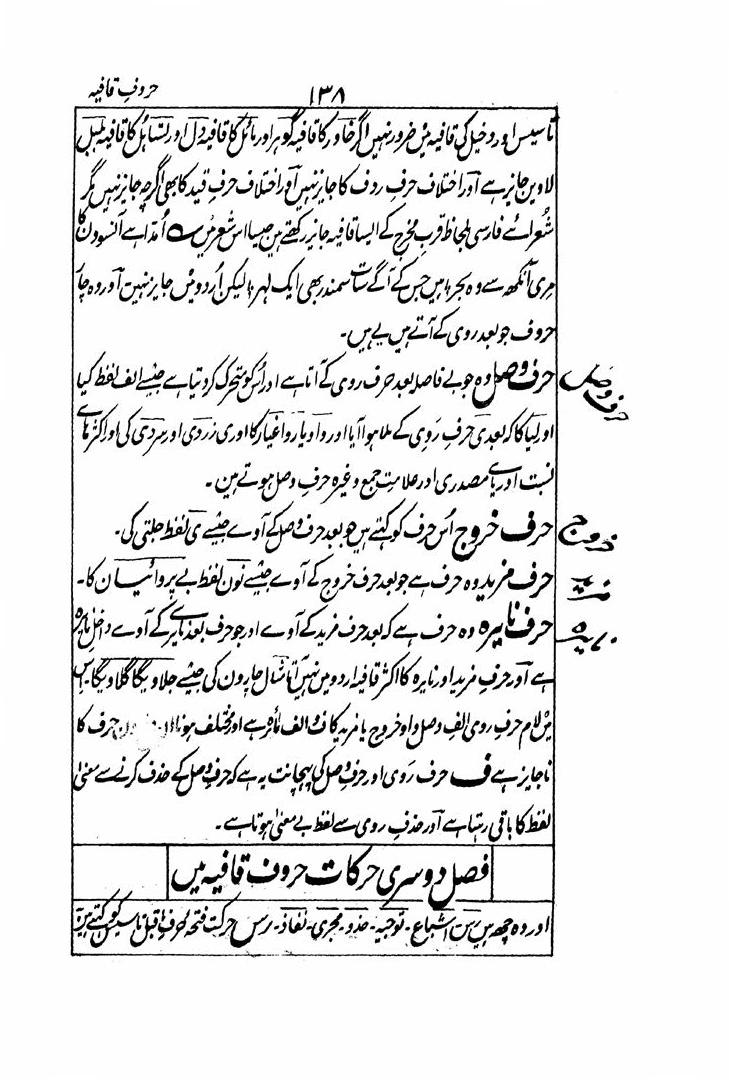 ۱۳۸
حروفِ قافیہ
تاسیس اور دخیل کی قافیہ میں ضرور نہیں اگر خاور کا قافیہ گوہر اور مائل کا قافیہ دل اور تسائل کا قافیہ بلبل
لاوین جایز ہے اور اختلاف حرفِ ردف کا جایز نہیں اور اختلاف حرفِ قید کا بھی اگرچہ جایز نہیں مگر
شعرائے فارسی بلحاظ قربِ مخرج کے ایسا قافیہ جایز رکھتے ہین جیسا اس شعر میں ؎ اُمڈا ہے آنسوون کا
مری آنکھ سے وہ بحر ؛ ہیں جس کے آگے سات سمندر بھی ایک لہر ؛ لیکن اُردو میں جایز نہین اور وہ چار
حروف جو بعد روی کے آتے ہیں یہ ہیں۔
حرفِ وصل وہ جو بے فاصلہ بعد حرف روی کے آتا ہے اور اُس کو متحرک کر دیتا ہے جیسے الف لفظ کیا
اولیا کا کہ بعد ی حرفِ رَوِی کے ملا ہوا آیا اور واو یارو اغیارکا اور ی زردی اور سردی کی اور اکثر ہائے
نسبت اور یائے مصدری اور علامتِ جمع وغیرہ حرفِ وصل ہوتے ہین۔
حرفِ وصل
حرف خروج اُس حرف کو کہتے ہیں جو بعد حرفِ وصل کے آوے جیسے ی لفظ جلتی کی۔
خروج
حرفِ مزید وہ حرف ہے جو بعد حرفِ خروج کے آوے جیسے نون لفظ بے پروائیان کا۔
مزید
حرفِ نایرہ وہ حرف ہے کہ بعد حرفِ مزید کے آوے اور جو حرف بعد نایرے کے آوے داخل نایرہ
نایرہ
ہے اور حرفِ مزید اور نایرہ کا اکثر قافیہ اردو میں نہیں آتا مثال چارون کی جیسے جلاویگا گلاویگا۔ اس
میں لام حرفِ روی الفِ وصل واو خروج یا مزید کاف والف نایرہ ہے اور مختلف ہونا ان حرف کا
ناجایز ہے ف حرف رَوِی اور حرفِ وصل کی پہچانت یہ ہے کہ حرفِ وصل کے حذف کرنے سے معنیٰ
لفظ کا باقی رہتا ہے اور حذفِ روی سے لفظ بے معنیٰ ہوتا ہے۔
فصل دوسری حرکات حروف قافیہ میں
اور وہ چھ ہیں رس اشباع۔ توجیہ۔ حذو۔ مجریٰ۔ نفاذ۔ رس حرکت فتحہ حرف ماقبل تاسیس کو کہتے ہیں